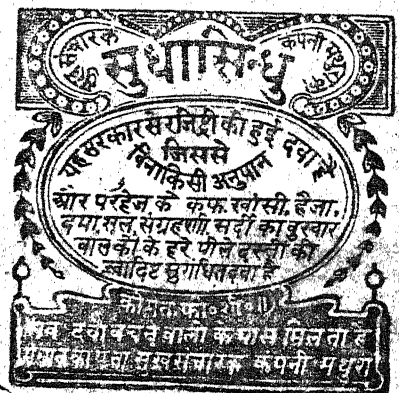 सुखसंचारक
सुधासिन्धु
कंपनी मथुरा का
यह सरकार से रजिष्ट्री की हुई दवा है
जिससे
बिनाकिसी अनुपान
और परहेज के कफ, खांसी, हैजा,
दमा, सूल, संग्रहणी, सर्दी का बुखार
बालकों के हरे पीले दस्तों की
स्वादिष्ट सुगंधित दवा है
कीमत फी०
सब दवा बेचने वालों के पास मिलता है
मंगाने का पता सुखसंचारक कंपनी मथुरा